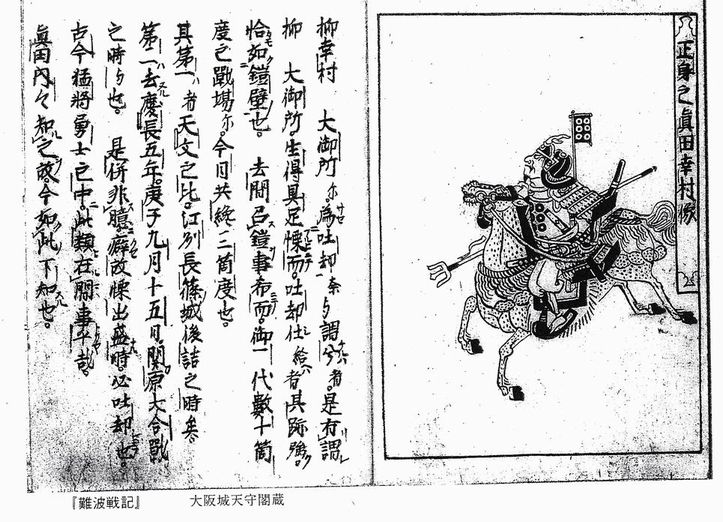 正身之眞田幸村像
抑幸村 大御所尓為吐却奈与謂兮者是有謂
抑 大御所生得具足慄而吐却仕給者其跡強
恰如鎧壁也。去間呂鎧事希而御一代數十箇
度之戰場尓今日共終二三箇度也。
其第一ハ者天文之比江州長篠城後詰之時矣。
第一ハ去慶長五年庚子九月十五日関原大合戰
之時与也。是併非臆癖故慄出盛時必吐却也。
古今猛將勇士之中此類在間事乎哉。
眞田内々知之故今如此下知也。
『難波戦記』 大阪城天守閣蔵